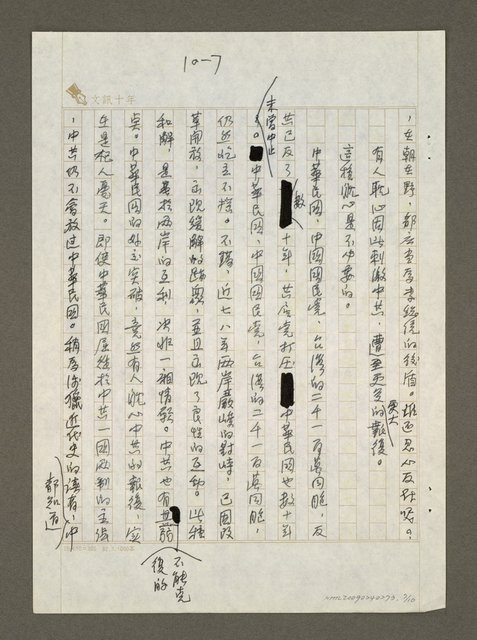 10-7
文訊十年
，在朝在野，都應當為李總統的後盾。誰還忍心反對呢。
有人耽心因此刺激中共，遭至更大的報復。
這種耽心是不必要的。
中華民國、中國國民黨，台灣的二千一百萬同胞，反
共已反了數十年，共產黨打壓中華民國也數十年
未嘗中止。中華民國、中國國民黨，台灣的二千一百萬同胞，
仍然屹立不搖。不錯，近七八年兩岸嚴峻的對峙，已因改
革開放，出現緩解的跡象，並且出現了良性的互動。此種
和解，是基於兩岸的互利，決非一廂情願。中共也有其弱
不能克復的
點。中華民國的外交突破，竟然有人耽心中共的報復，實
在是杞人憂天。即使中華民國屈雌於中共一國兩制的主張
，中共仍不會放過中華民國。稍為涉獵近代史的讀者，
都知道
中
nmm20090240273 7/10